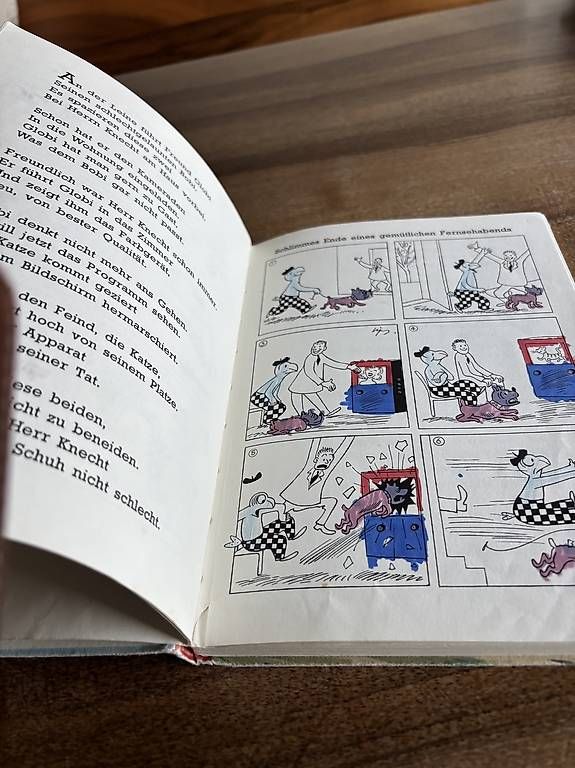 An der Leine führt Freund Globi
Seinen schlechtgelaunten Bobi.
Es spazieren diese zwei
Bei Herrn Knecht am Haus vorbei.
Schon hat er den Kameraden
In die Wohnung eingeladen.
Globi hat man gern zu Gast,
Was dem Bobi gar nicht passt.
Freundlich war Herr Knecht schon immer,
Er führt Globi in das Zimmer
Und zeigt ihm das Farbgerät,
eu, von bester Qualität.
bi denkt nicht mehr ans Gehen,
ill jetzt das Programm sehen.
Katze kommt geziert
m Bildschirm hermarschiert.
den Feind, die Katze,
t hoch von seinem Platze,
Apparat
seiner Tat.
ese beiden,
icht zu beneiden.
Herr Knecht
Schuh nicht schlecht.
Schlimmes Ende eines gemütlichen Fernsehabends
1
2
3
4
5
6